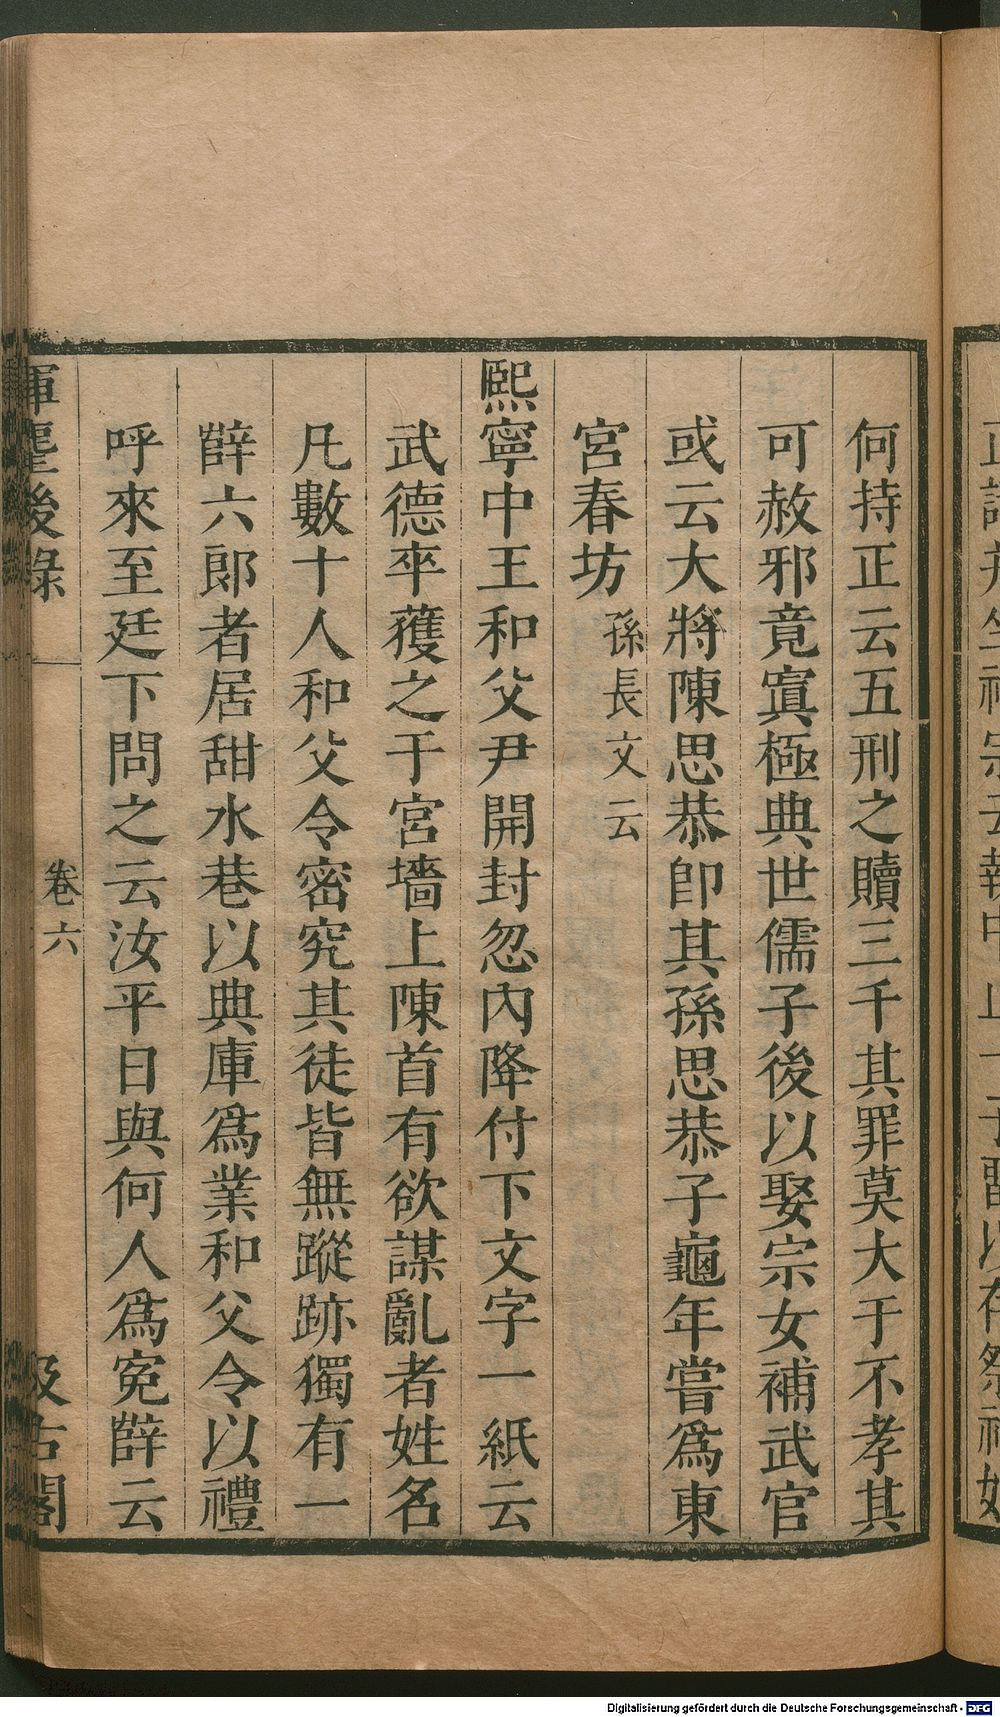 何持正云五刑之贖三千其罪莫大于不孝其
可赦邪竟寘極典世儒子後以娶宗女補武官
或云大將陳思恭卽其孫思恭子龜年嘗爲東
宮春坊孫長文云
熙寧中王和父尹開封忽內降付下文字一紙云
武德卒獲之于宮墻上陳首有欲謀亂者姓名
凡數十人和父令密究其徒皆無蹤跡獨有一
薛六郎者居甜水巷以典庫爲業和父令以禮
呼來至廷下問之云汝平日與何人爲寃薛云
揮麈後錄 卷六 汲古閣
Digitalisierung gefördert durch die Deutsche Forschungsgemeinschaft - DFG